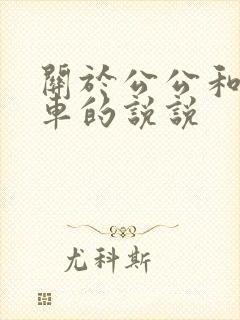 關於公公和
車的說說
尤科斯